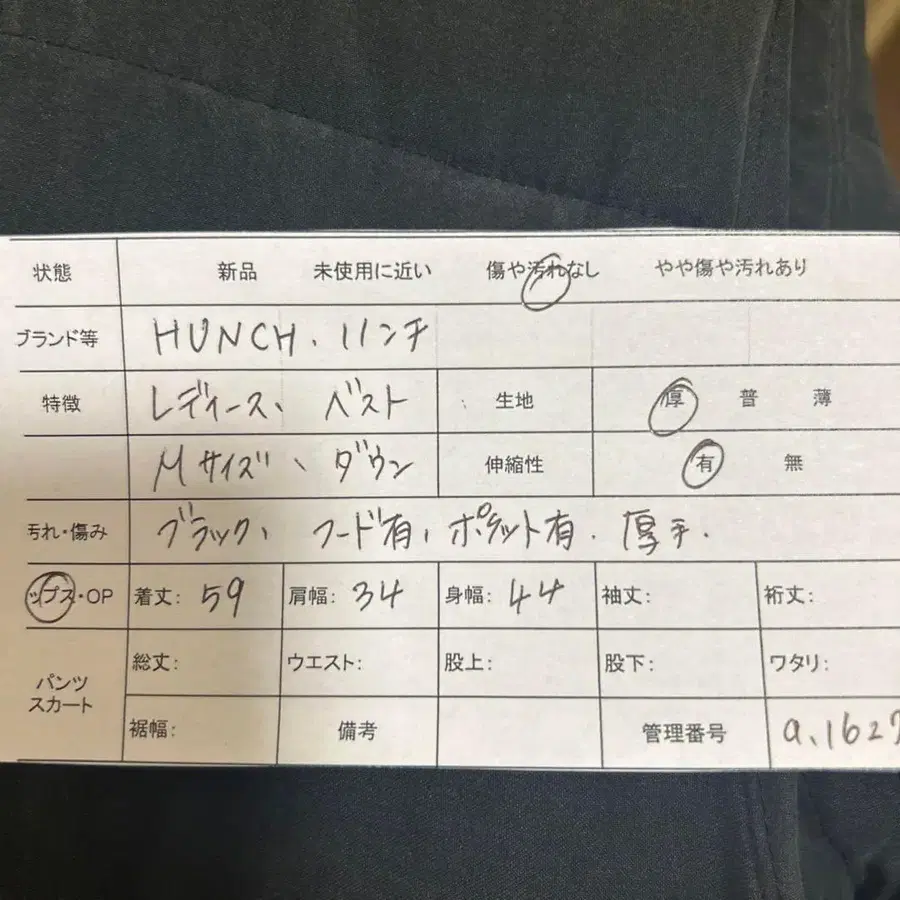 状態 新品 未使用に近い 傷や汚れなし やや傷や汚れあり
ブランド等 HUNCH、ハンチ
特徴 レディース、ベスト 生地 厚 普 薄
Mサイズ、ダウン 伸縮性 有 無
汚れ・傷み ブラック、フード有、ポケット有、厚手、
ップス・OP 着丈: 59 肩幅: 34 身幅: 44 袖丈: 裄丈:
パンツ スカート 総丈: ウエスト: 股上: 股下: ワタリ:
裾幅: 備考 管理番号 a、1627